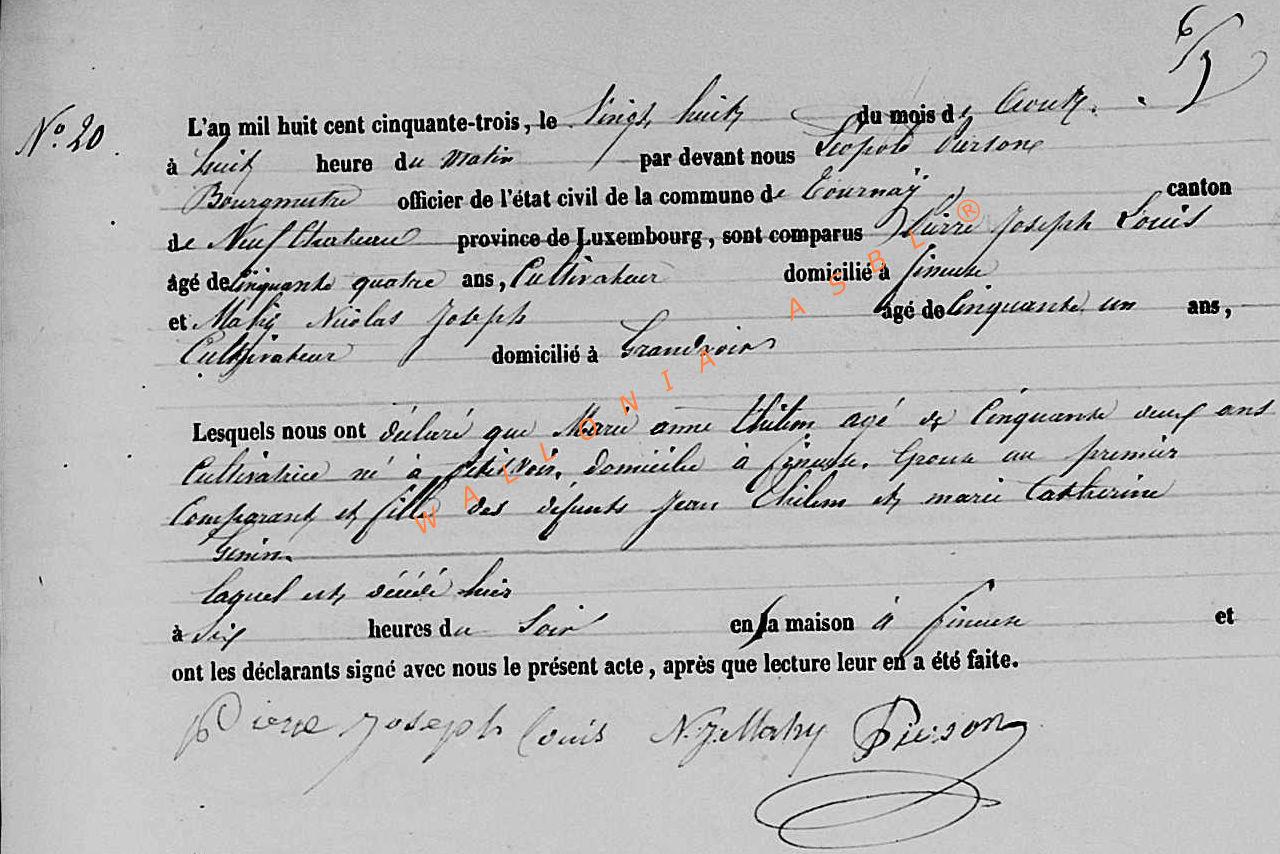 6/3
No. 20
L'an mil huit cent cinquante-trois, le vingt huit du mois de Aout.
à huit heure du matin par devant nous Léopold Pierson
Bourgmestre officier de l'état civil de la commune de Tournay canton
de Neufchateau province de Luxembourg, sont comparus Pierre Joseph Louis
âgé de cinquante quatre ans, Cultivateur domicilié à
et Mahy Nicolas Joseph âgé de cinquante un ans,
Cultivateur domicilié à Grandvoir
Lesquels nous ont déclaré que Marie anne thilem agé de Cinquante deux ans
Cultivatrice né à petitvoir, domicilié à épouse au premier
Comparant et fille des défunts Jean thilem et marie Catherine
Genin.
laquel est décédé hier
à six heures du soir en sa maison à et
ont les déclarants signé avec nous le présent acte, après que lecture leur en a été faite.
Pierre Joseph Louis N. J. Mahy Pierson
WALLONIA ASBL ®